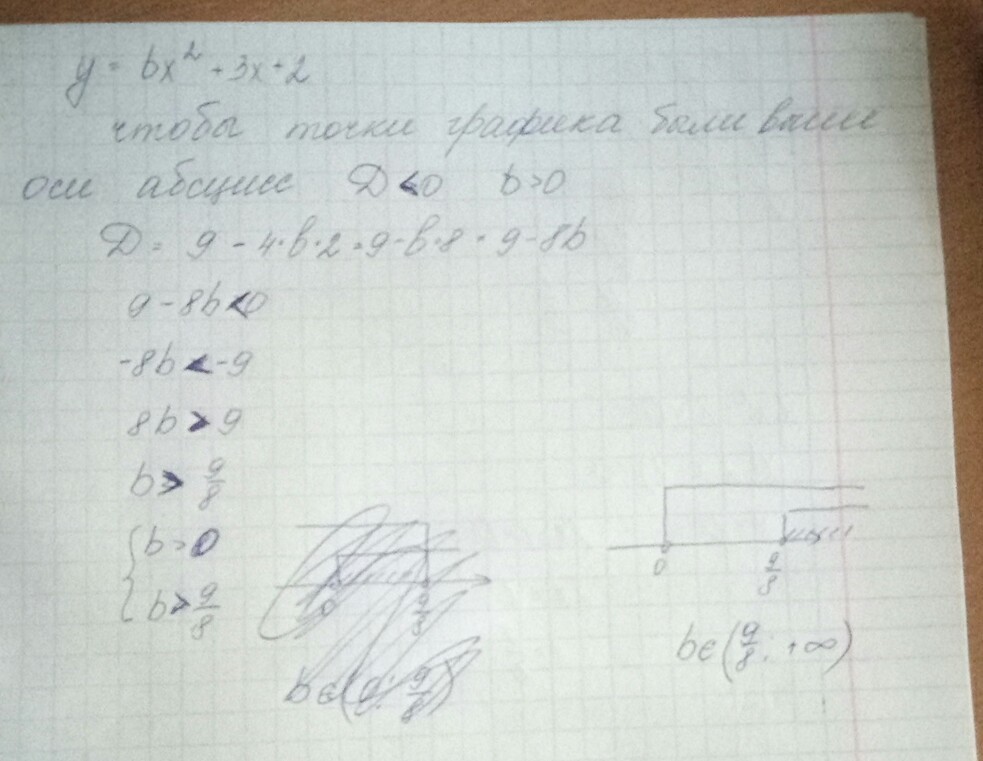 y = bx² + 3x + 2
чтобы точки графика были выше
оси абсцисс D < 0 b > 0
D = 9 - 4·b·2 = 9 - b·8 = 9 - 8b
9 - 8b < 0
-8b < -9
8b > 9
b > 9/8
{ b > 0
b > 9/8
0 9/8
b ∈ (0; 9/8)
0 9/8
b ∈ (9/8; +∞)